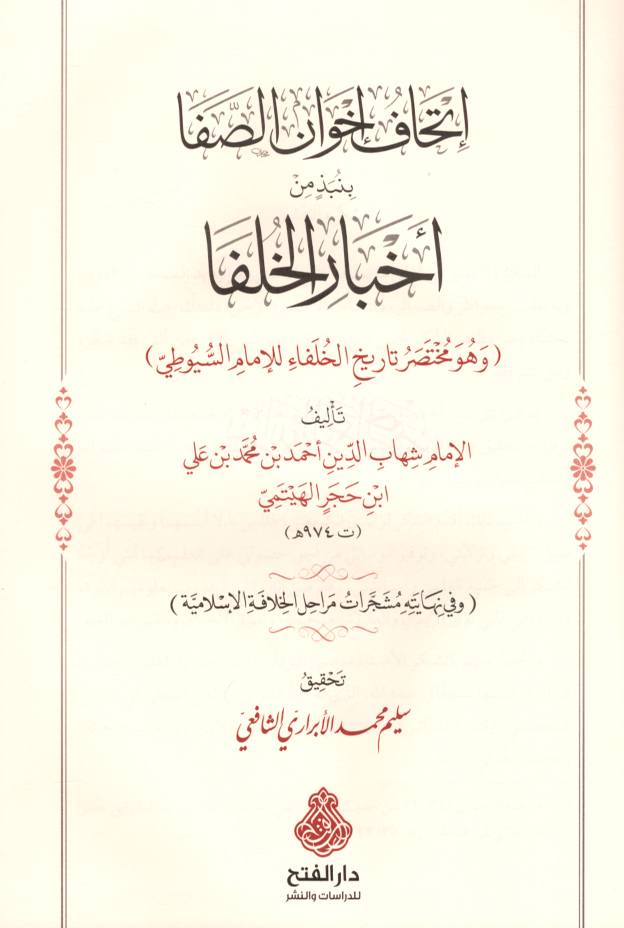 إِتْحَافُ إِخْوَانِ الصَّفَا
بِنُبَذٍ مِنْ
أَخْبَارِ الخُلَفَا
(وَهُوَ مُخْتَصَرُ تَارِيخِ الخُلَفَاءِ للإمَامِ السُّيُوطِيّ)
تَأْلِيفُ
الإمَامِ شِهَابِ الدِّينِ أحْمَد بْن مُحَمَّد بْن عَلي
ابْنِ حَجَرٍ الهَيْتَمِيّ
(ت ٩٧٤هـ)
(وفي نِهَايَتِهِ مُشَجَّرَاتُ مَرَاحِلِ الخِلَافَةِ الإسْلَامِيَّة)
تَحْقِيقُ
سليم محمد الأبراري الشافعيّ
دار الفتح
للدراسات والنشر